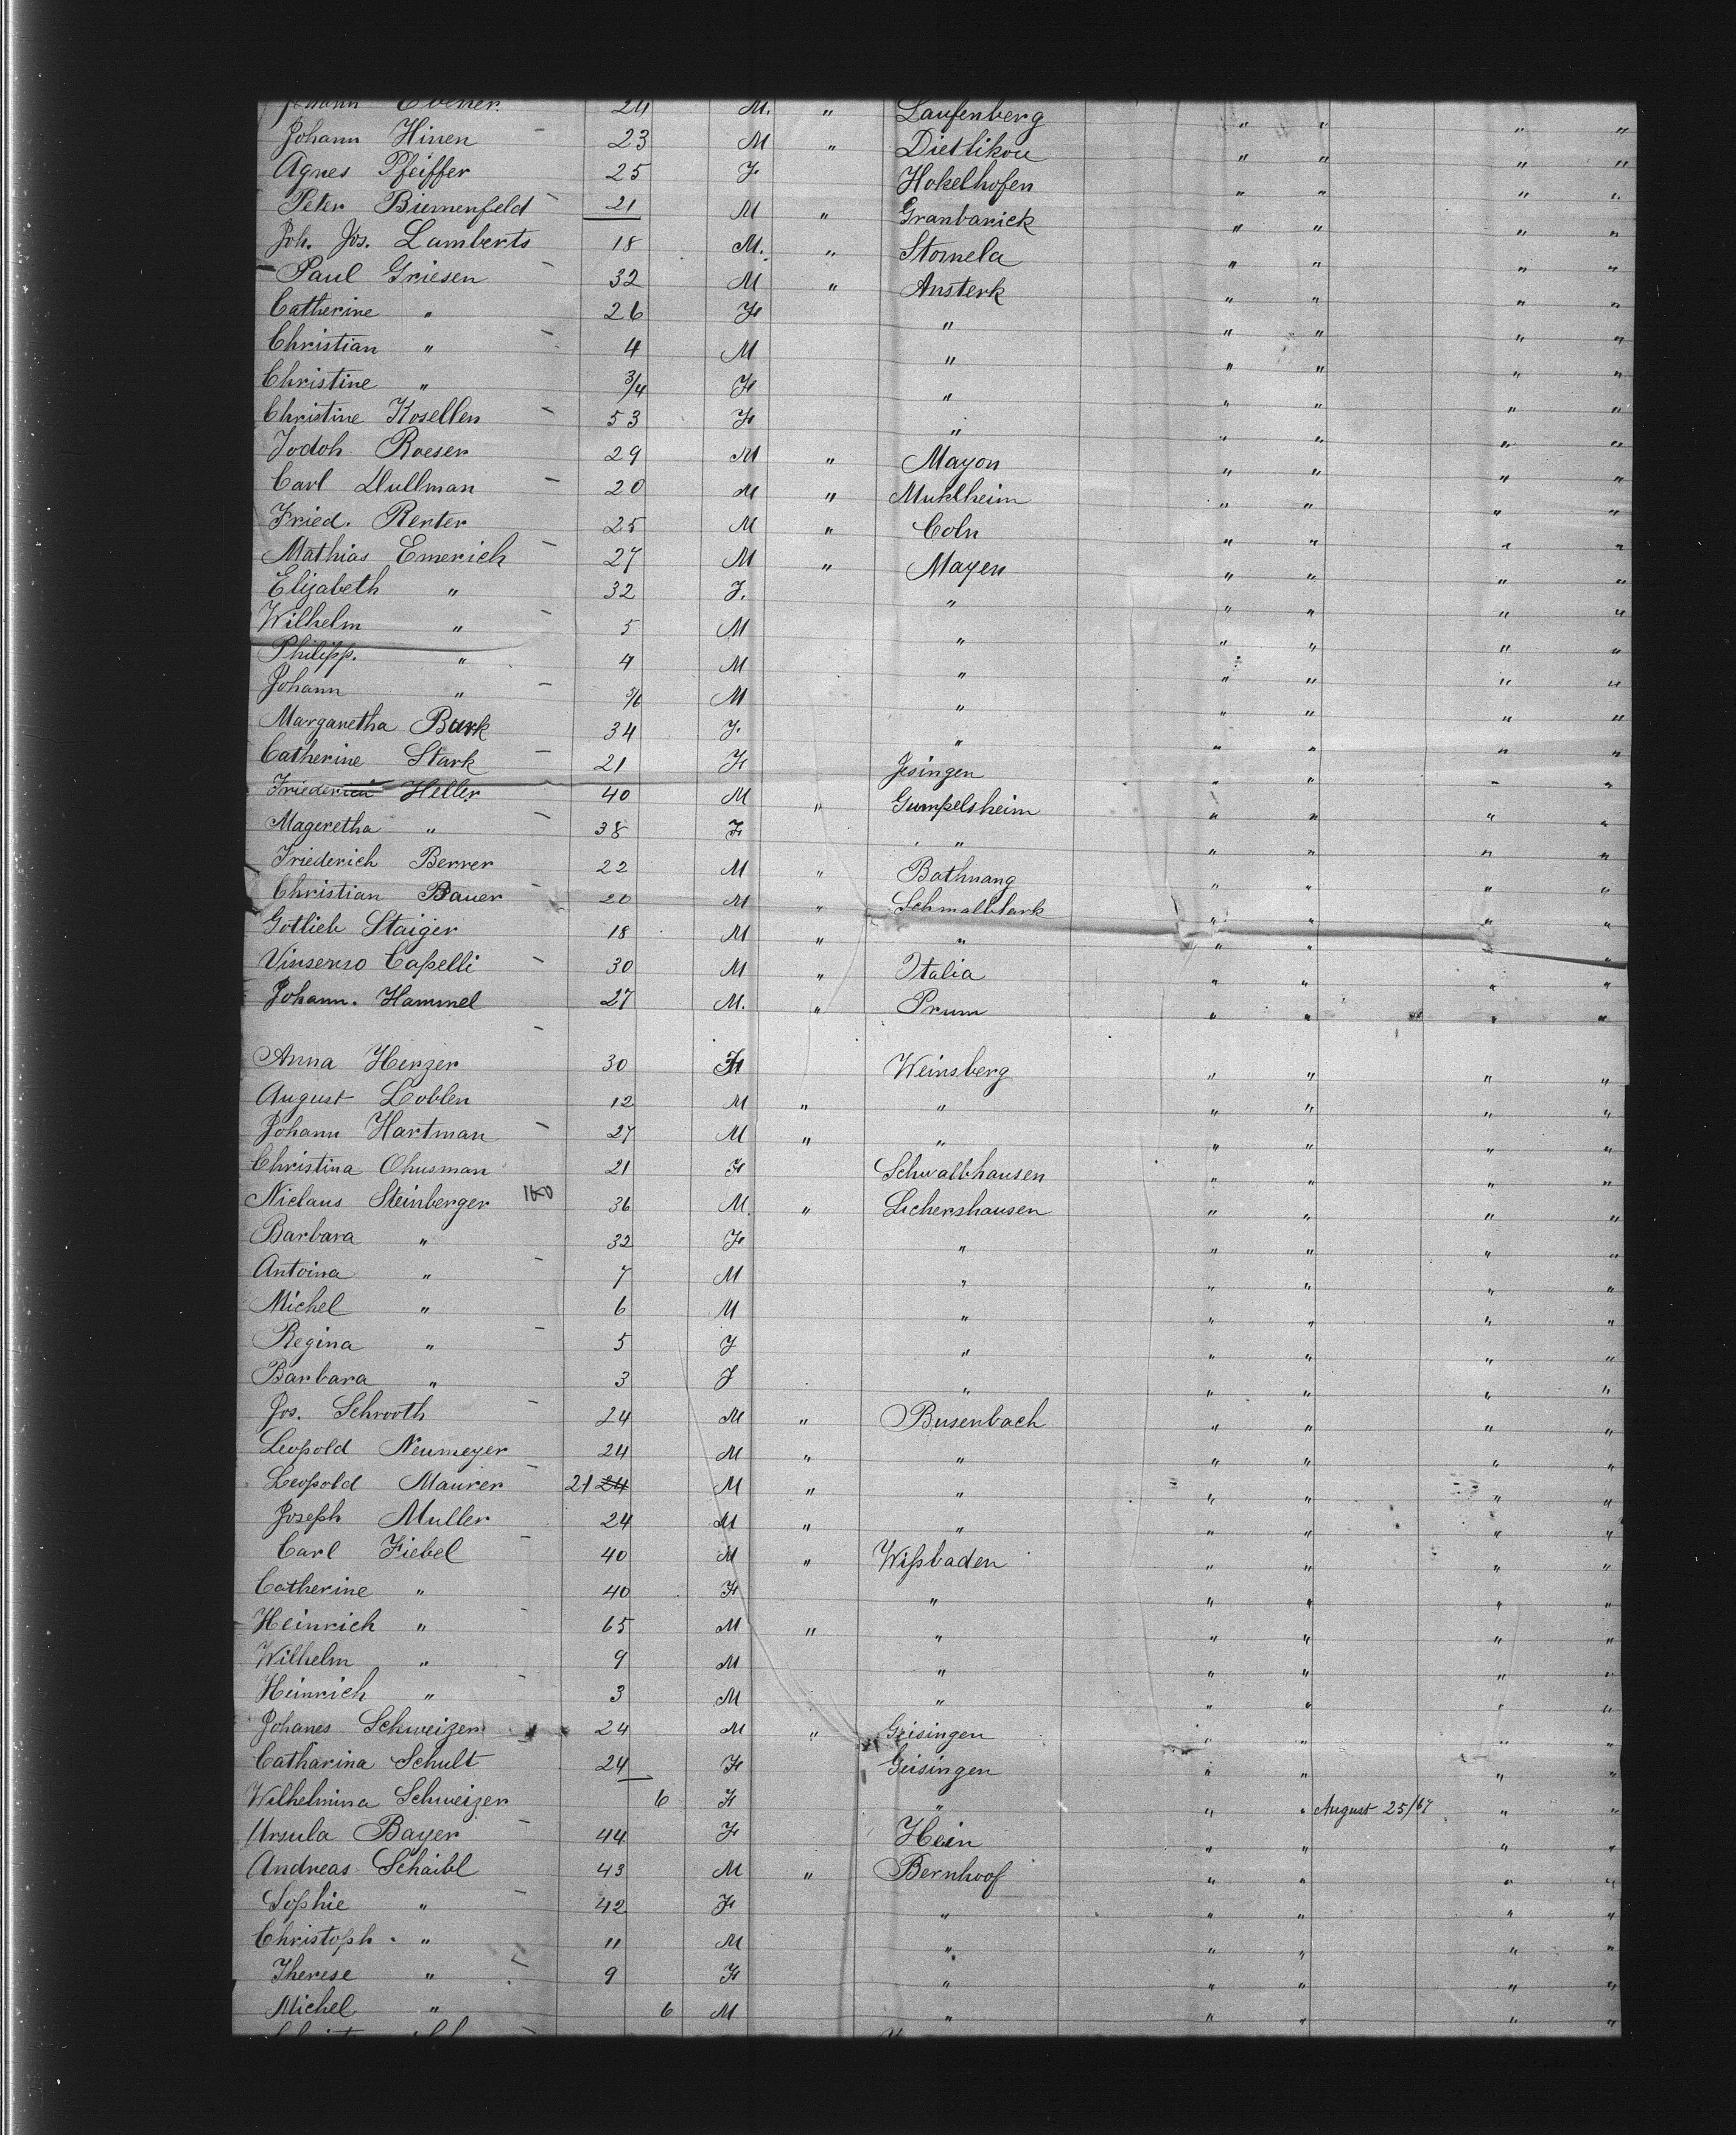 Johann Ebener. 24 M. " Laufenberg " " " "
Johann Hinen 23 M " Dietlikou " " " "
Agnes Pfeiffer 25 F Hokelhofen " " " "
Peter Biemenfeld 21 M " Granbarick " " " "
Joh. Jos. Lamberts 18 M. " Stomela " " " "
Paul Griesen 32 M " Ansterk " " " "
Catherine " 26 F " " " " "
Christian " 4 M " " " " "
Christine " 3/4 F " " " " "
Christine Kosellen 53 F " " " " "
Jodoh Roeser 29 M " Mayon " " " "
Carl Dullman 20 M " Muklheim " " " "
Fried. Renter 25 M " Coln " " " "
Mathias Emerich 27 M " Mayen " " " "
Elizabeth " 32 F. " " " " "
Wilhelm " 5 M " " " " "
Philipp. " 4 M " " " " "
Johann " 5/6 M " " " " "
Marganetha Burk 34 F. " " " " "
Catherine Stark 21 F Jesingen " " " "
Friederich Heller 40 M " Gumpelsheim " " " "
Mageretha " 38 F " " " " "
Friederich Berrer 22 M " Bathnang " " " "
Christian Bauer 20 M " " " " "
Gotlieb Staiger 18 M " " " " " "
Vinsenso Capelli 30 M " Italia " " " "
Johann. Hammel 27 M. " Prum " " " "
Anna Herzer 30 F Weinsberg " " " "
August Loblen 12 M " " " " " "
Johann Hartman 27 M " " " " " "
Christina Ohusman 21 F Schwalbhausen " " " "
Niclaus Steinberger 36 M. " Lichershausen " " " "
Barbara " 32 F " " " " "
Antoina " 7 M " " " " "
Michel " 6 M " " " " "
Regina " 5 F " " " " "
Barbara " 3 F " " " " "
Jos. Schrooth 24 M " Busenbach " " " "
Leopold Neumeyer 24 M " " " " " "
Leopold Maurer 21 24 M " " " " " "
Joseph Muller 24 M " " " " " "
Carl Fiebel 40 M " Wißbaden " " " "
Catherine " 40 F " " " " "
Heinrich " 65 M " " " " " "
Wilhelm " 9 M " " " " "
Heinrich " 3 M " " " " "
Johanes Schweizer 24 M " Geisingen " " " "
Catharina Schult 24 F Geisingen " " " "
Wilhelmina Schweizer 6 F " " " August 25/67 " "
Ursula Bayer 44 F Hein " " " "
Andreas Schaibl 43 M " Bernhoof " " " "
Sophie " 42 F " " " " "
Christoph " 11 M " " " " "
Therese " 9 F " " " " "
Michel " 6 M " " " " "